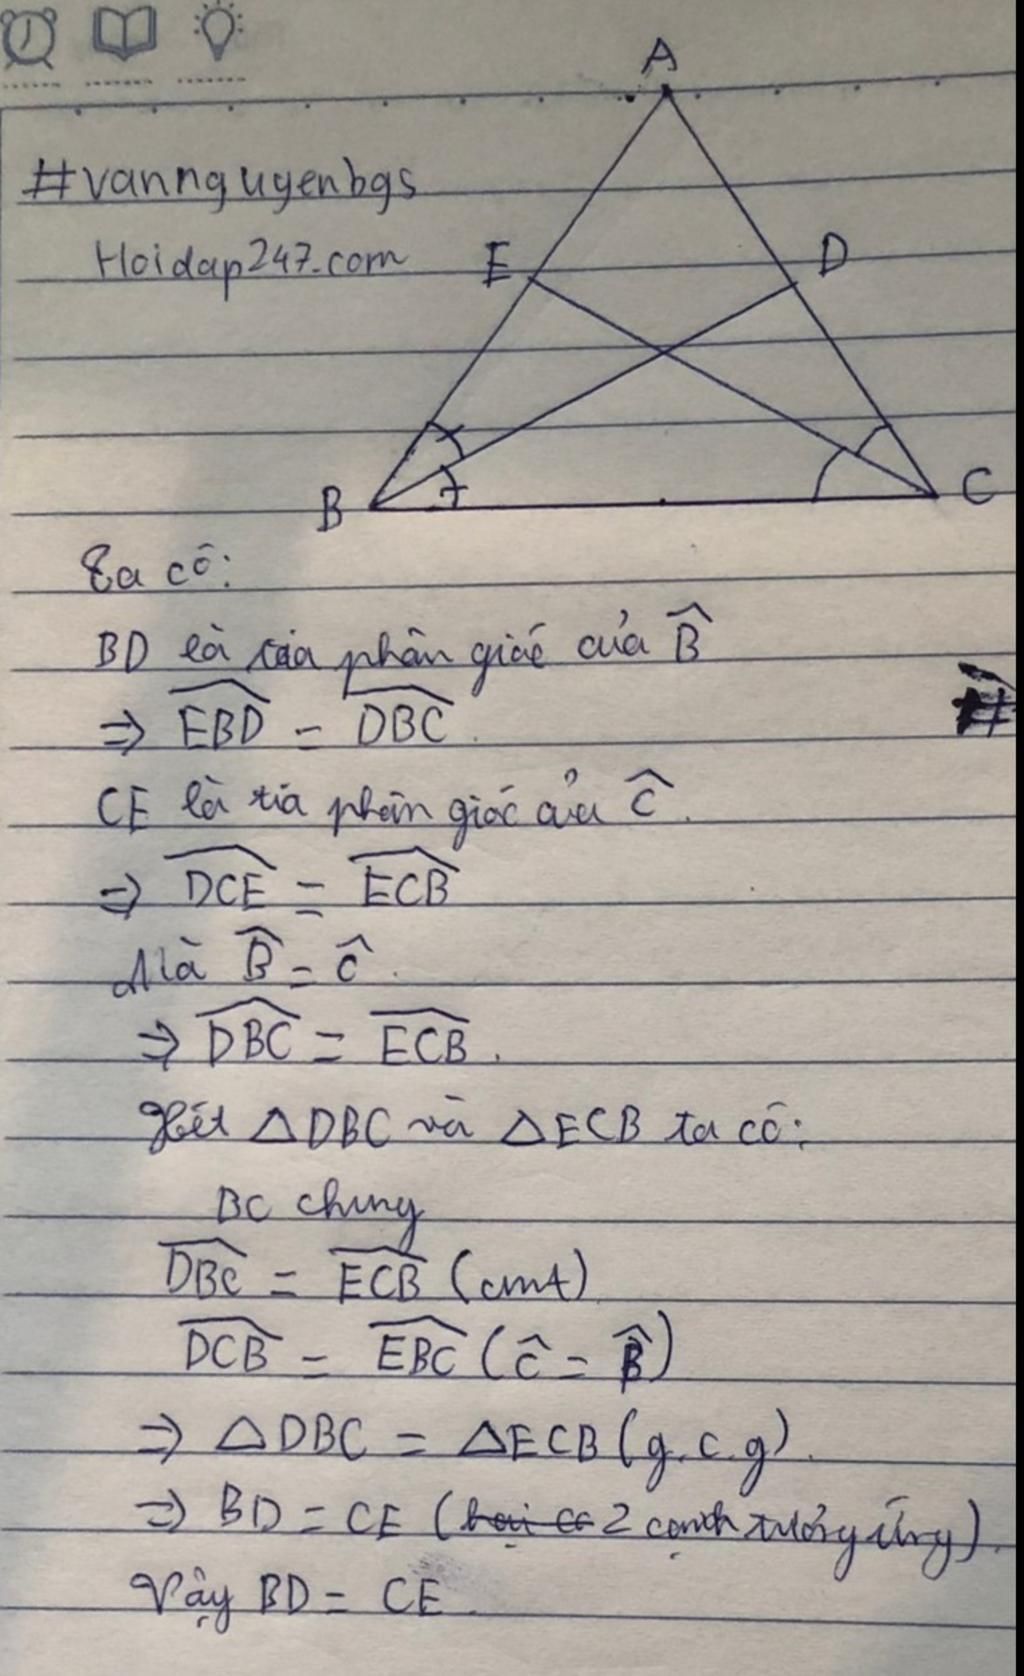 A
#vannguyenbgs
Hoidap247.com
E
D
B
C
Ta có:
BD là tia phân giác của B̂
⇒ EBD̂ = DBĈ.
CE là tia phân giác của Ĉ.
⇒ DCÊ = ECB̂
Mà B̂ = Ĉ.
⇒ DBĈ = ECB̂.
Xét △DBC và △ECB ta có:
BC chung
DBĈ = ECB̂ (cmt)
DCB̂ = EBĈ (Ĉ = B̂)
⇒ △DBC = △ECB (g.c.g).
⇒ BD = CE (2 cạnh tương ứng).
Vậy BD = CE.